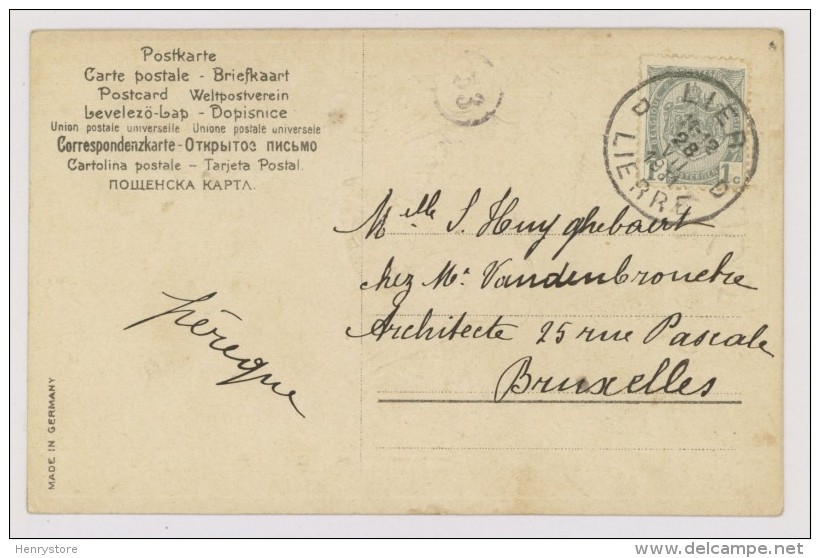 Postkarte
Carte postale - Briefkaart
Postcard Weltpostverein
Levelező-Lap - Dopisnice
Union postale universelle Unione postale universele
Correspondenzkarte - Открытое письмо
Cartolina postale - Tarjeta Postal.
ПОЩЕНСКА КАРТА.
33
D LIER D
28
VII
LIERRE
1 c
Melle S. Huyghebaert
chez Mr Vandenbroucke
Architecte 25 rue Pascale
Bruxelles
MADE IN GERMANY
Henrystore
delcampe.net